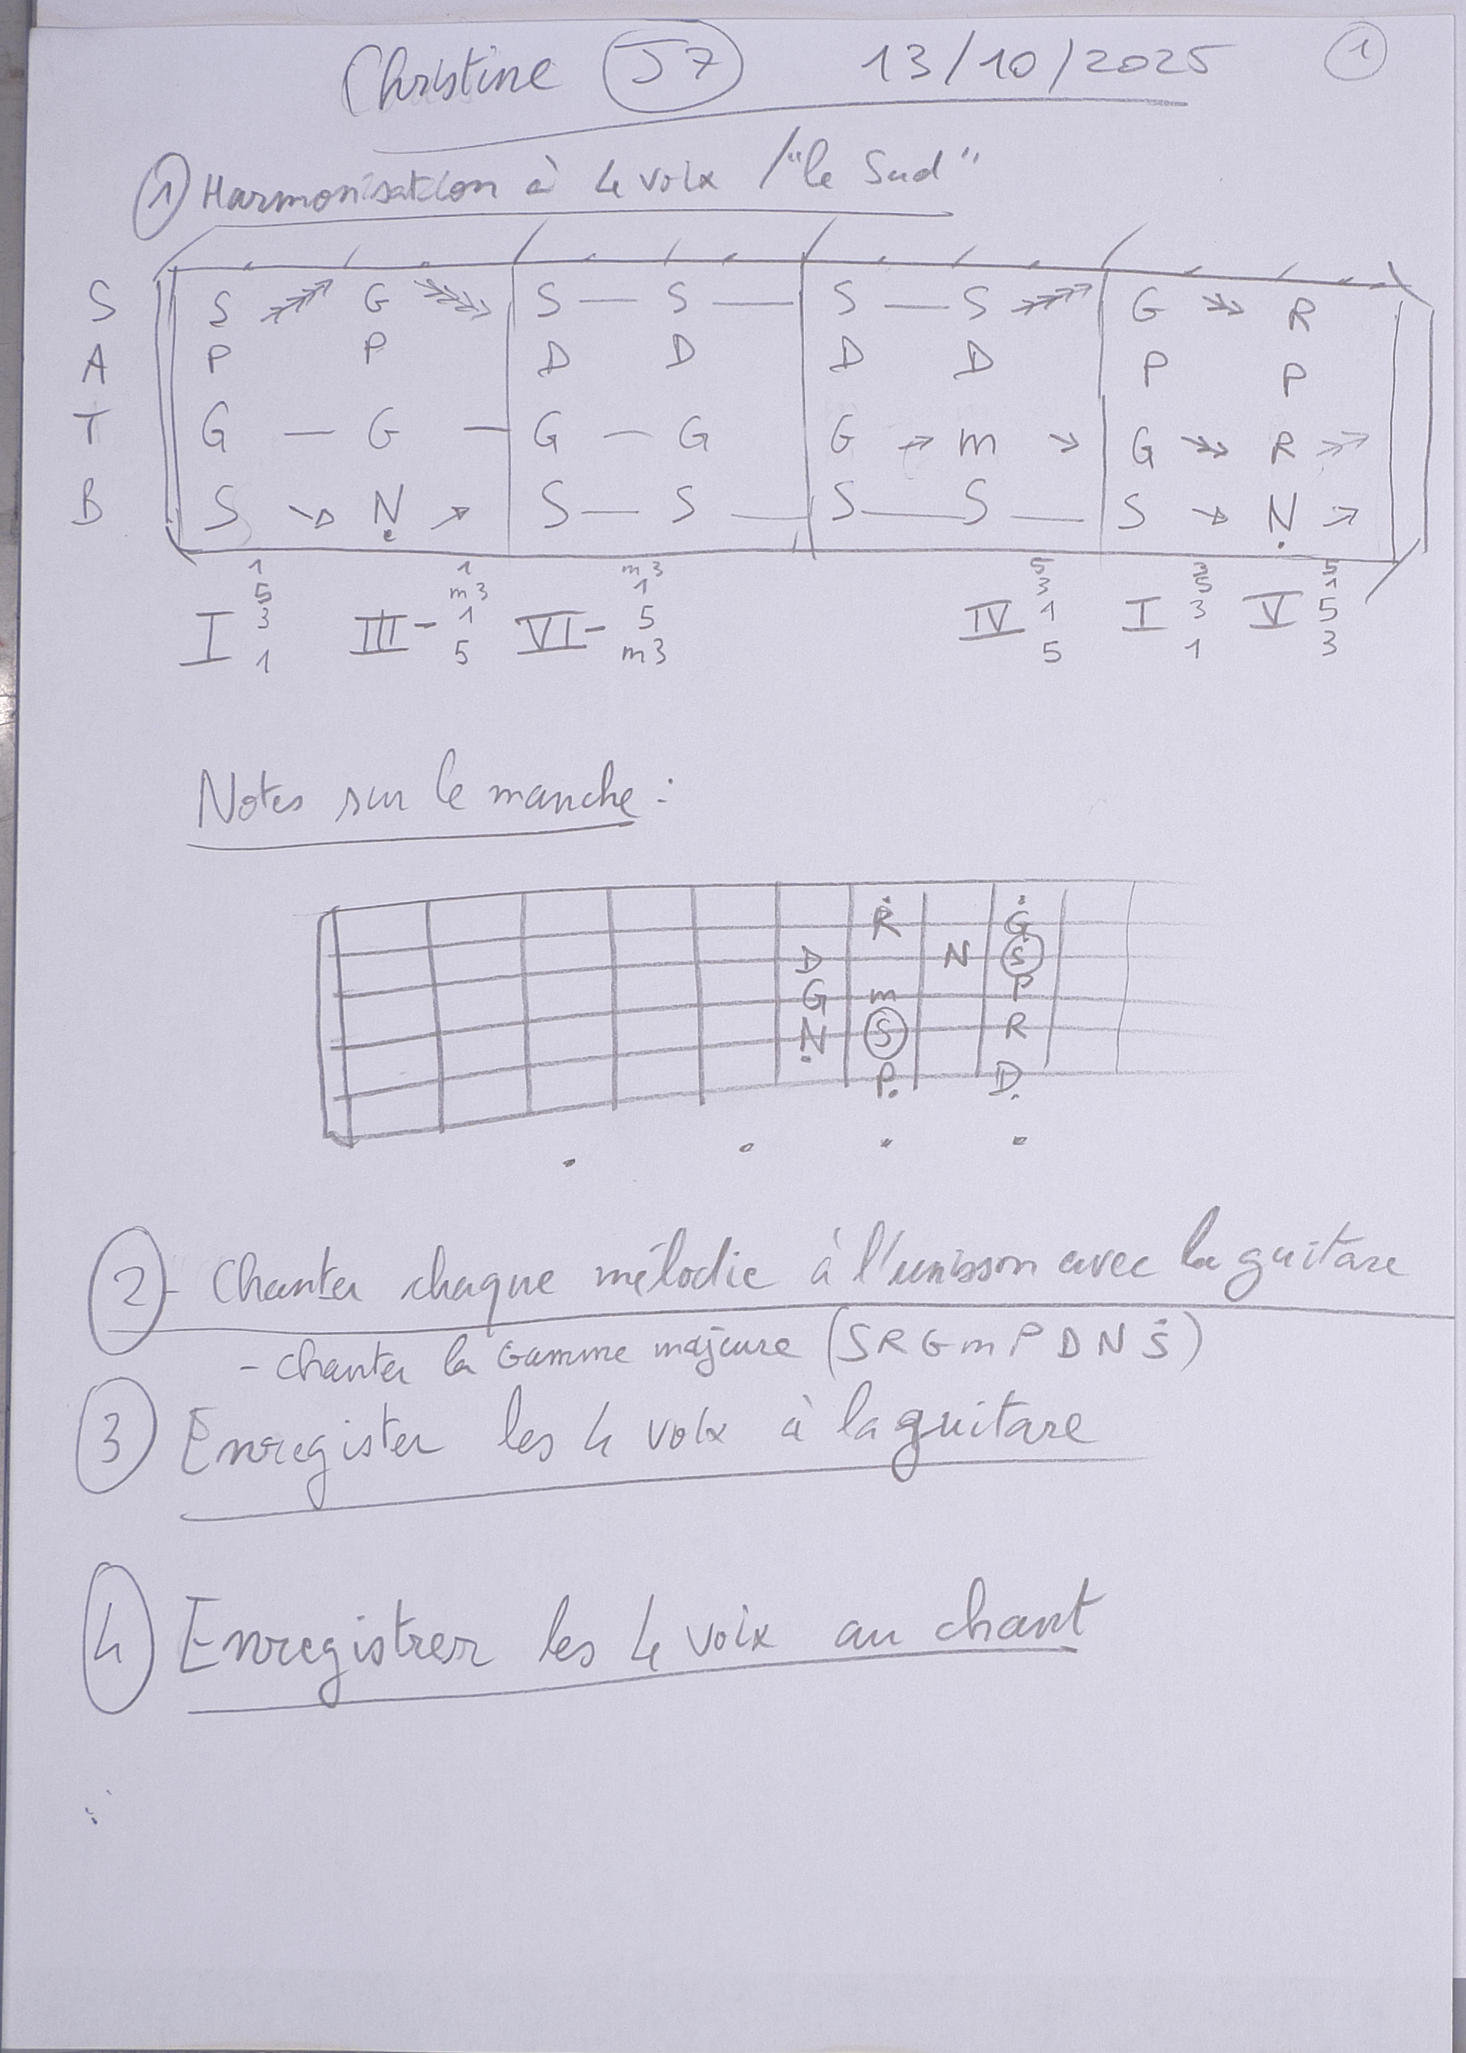 Christine J7 13/10/2025 1
1 Harmonisation à 4 voix / "le Sud"
S S G S — S — S — S G R
A P P D D D D P P
T G — G — G — G G m G R
B S Ṇ S — S — S — S — S Ṇ
1 1 m3 5 3 5
5 m3 1 3 5 1
I 3 III- 1 VI- 5 IV 1 I 3 V 5
1 5 m3 5 1 3
Notes sur le manche :
Ṙ Ġ
D N S
G m P
Ṇ S R
P. D.
2 - Chanter chaque mélodie à l'unisson avec la guitare
- chanter la Gamme majeure (S R G m P D N Ṡ)
3 Enregister les 4 voix à la guitare
4 Enregistrer les 4 voix au chant